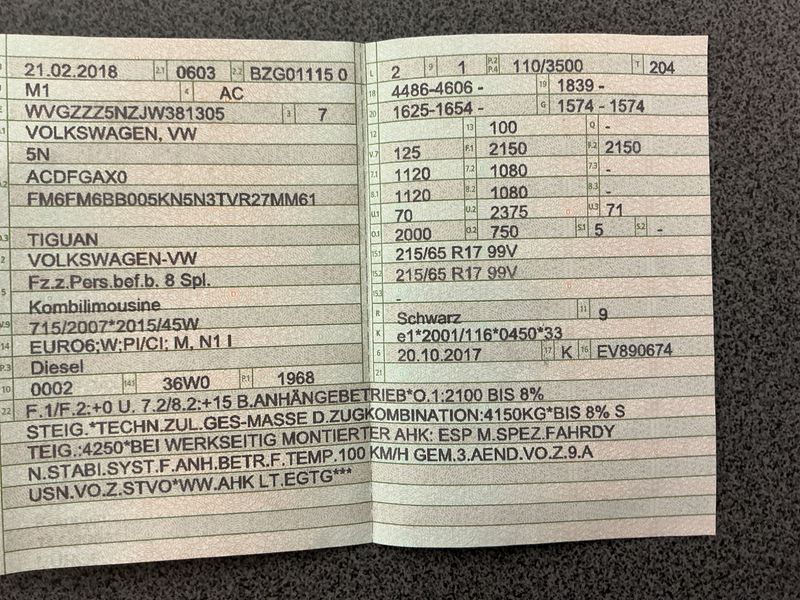 21.02.2018 2.1 0603 2.2 BZG01115 0
M1 4 AC
WVGZZZ5NZJW381305 3 7
VOLKSWAGEN, VW
5N
ACDFGAX0
FM6FM6BB005KN5N3TVR27MM61
D.3 TIGUAN
2 VOLKSWAGEN-VW
Fz.z.Pers.bef.b. 8 Spl.
5 Kombilimousine
V.9 715/2007*2015/45W
14 EURO6;W;PI/CI; M, N1 I
P.3 Diesel
10 0002 14.1 36W0 P.1 1968
L 2 9 1 P.2 P.4 110/3500 T 204
18 4486-4606 - 19 1839 -
20 1625-1654 - G 1574 - 1574
12 13 100 Q -
V.7 125 F.1 2150 F.2 2150
7.1 1120 7.2 1080 7.3 -
8.1 1120 8.2 1080 8.3 -
U.1 70 U.2 2375 U.3 71
O.1 2000 O.2 750 S.1 5 S.2 -
15.1 215/65 R17 99V
15.2 215/65 R17 99V
15.3 -
R Schwarz 11 9
K e1*2001/116*0450*33
6 20.10.2017 17 K 16 EV890674
21
22 F.1/F.2:+0 U. 7.2/8.2:+15 B.ANHÄNGEBETRIEB*O.1:2100 BIS 8%
STEIG.*TECHN.ZUL.GES-MASSE D.ZUGKOMBINATION:4150KG*BIS 8% S
TEIG.:4250*BEI WERKSEITIG MONTIERTER AHK: ESP M.SPEZ.FAHRDY
N.STABI.SYST.F.ANH.BETR.F.TEMP.100 KM/H GEM.3.AEND.VO.Z.9.A
USN.VO.Z.STVO*WW.AHK LT.EGTG***